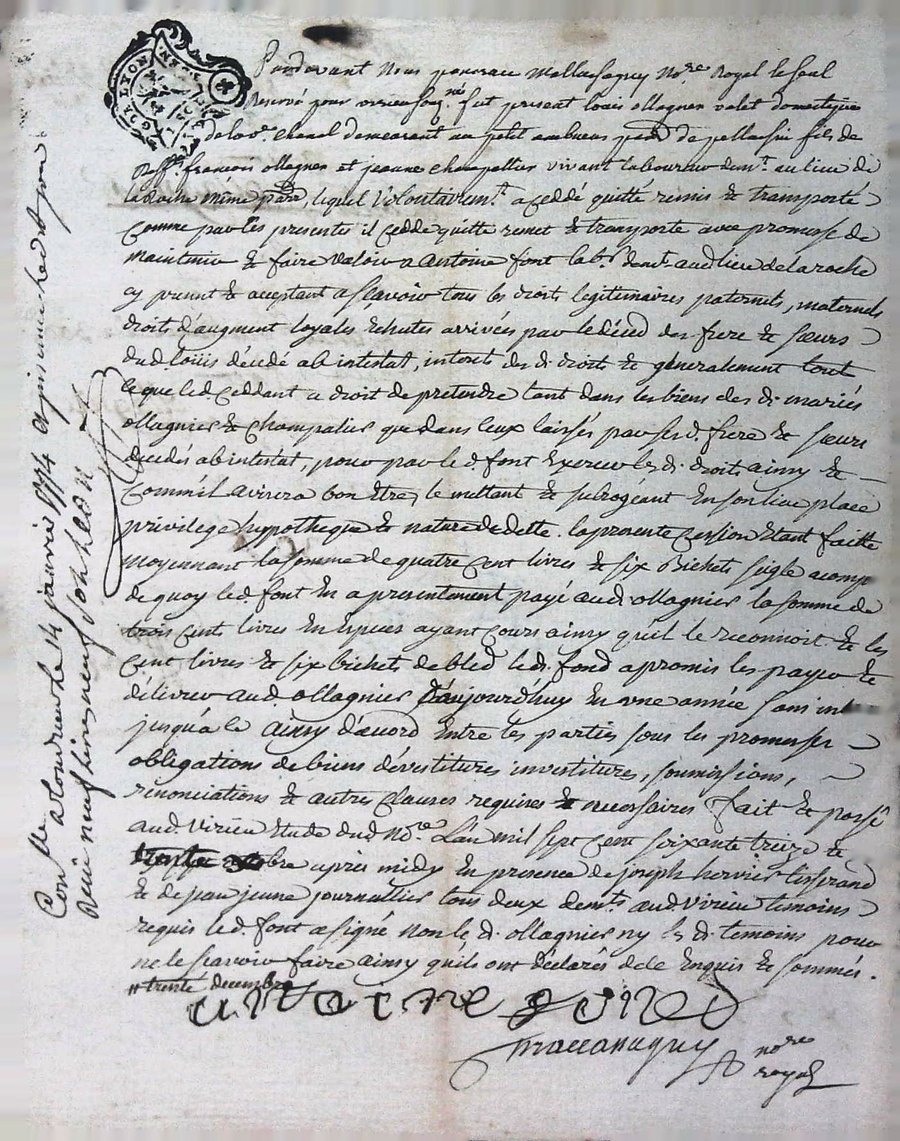 G. DE LYON
Pardevant Nous pancrace Mallassagny No.re Royal le seul
Reservé pour virieu soug.né fut present Louis ollagner valet domestique
de la v.e chanel demeurant au petit amburus par.se de pellussin fils de
deff.t françois ollagner et jeanne champallier vivant laboureur dem.t au lieu de
la Roche même par.se, lequel volontairem.t a ceddé quitté remis & transporté
comme par ces presentes il cedde quitte remet & transporte avec promesse de
maintenir & faire valoir a antoine font lab.r dem.t aud. lieu de la roche
cy presnt & acceptant a sçavoir tous les droits legitimaires paternels, maternels
droits d'augment loyales echutes arrivés par le déced des frere & sœurs
dud. louis décédé ab intestat, interets des d. droits & generalement tout
ce que led. ceddant a droit de pretendre tant dans les biens des d. mariés
ollagnier & champalier que dans ceux laissés par ses d. frere & sœurs
décédés ab intestat, pour par le d. font exercer les d. droits ainsy &
comm'il avisera bon être, le mettant & subrogeant en son lieu place
privilege hypotheque & nature de dette. la presente cession étant faitte
moyennant la somme de quatre cent livres & six bichets segle acompte
de quoy led. font en a presentement payé aud. ollagnier la somme de
trois cents livres en especes ayant cours ainsy qu'il le reconnoit & les
cent livres & six bichets de bled le d. fond a promis les payer &
délivrer aud. ollagnier d'aujourd'huy en une année sans int
jusqu'a lé ainsy d'acord entre les parties sous les promesses
obligations de biens dévestitures investitures, soumissions,
rénonciations & autres clauses requises & necessaires fait & passé
aud. virieu étude dud. No.re L'an mil sept cent soixante treize &
après midy en presence de joseph hervier tisserand
& de jean jeune journallier tous deux dem.ts aud. virieu temoins
requis le d. font a signé non le d. ollagnier ny les d. temoins pour
ne le sçavoir faire ainsy qu'ils ont déclarés de ce enquis & sommés.
# trente decembre
antoine fond
mallassagny
no.re
royal
Con.lé
a Condrieu le 14 janvier 1774
Reçu neuf livres neuf sols